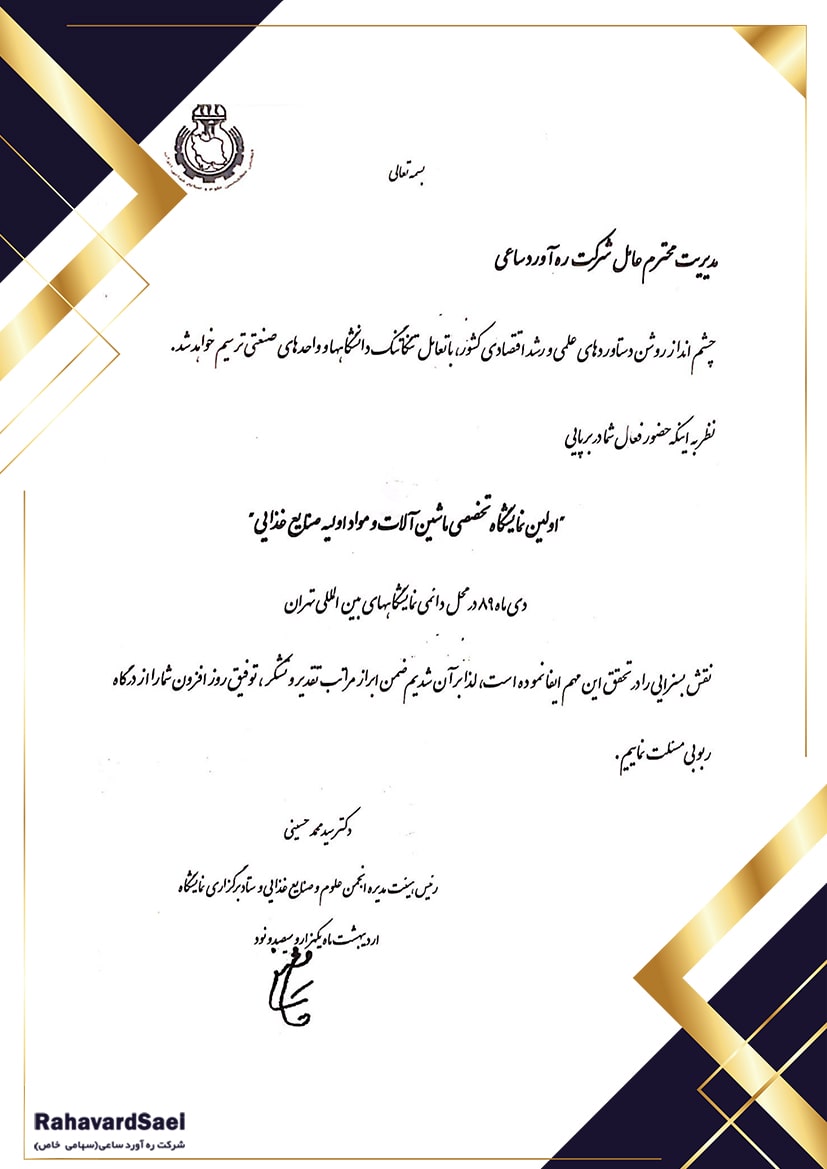 بسمه تعالی
مدیریت محترم عامل شرکت ره آورد ساعی
چشم انداز روشن دستاوردهای علمی و رشد اقتصادی کشور، با تعامل تنگاتنگ دانشگاهها و واحدهای صنعتی ترسیم خواهد شد.
نظر به اینکه حضور فعال شما در برپایی
"اولین نمایشگاه تخصصی ماشین آلات و مواد اولیه صنایع غذایی"
دی ماه ۸۹ در محل دائمی نمایشگاههای بین المللی تهران
نقش بسزایی را در تحقق این مهم ایفا نموده است، لذا بر آن شدیم ضمن ابراز مراتب تقدیر و تشکر، توفیق روز افزون شما را از درگاه
ربوبی مسئلت نماییم.
دکتر سید محمد حسینی
رئیس هیئت مدیره انجمن علوم و صنایع غذایی و ستاد برگزاری نمایشگاه
اردیبهشت ماه یکهزار و سیصد و نود
RahavardSaei
شرکت ره آورد ساعی(سهامی خاص)